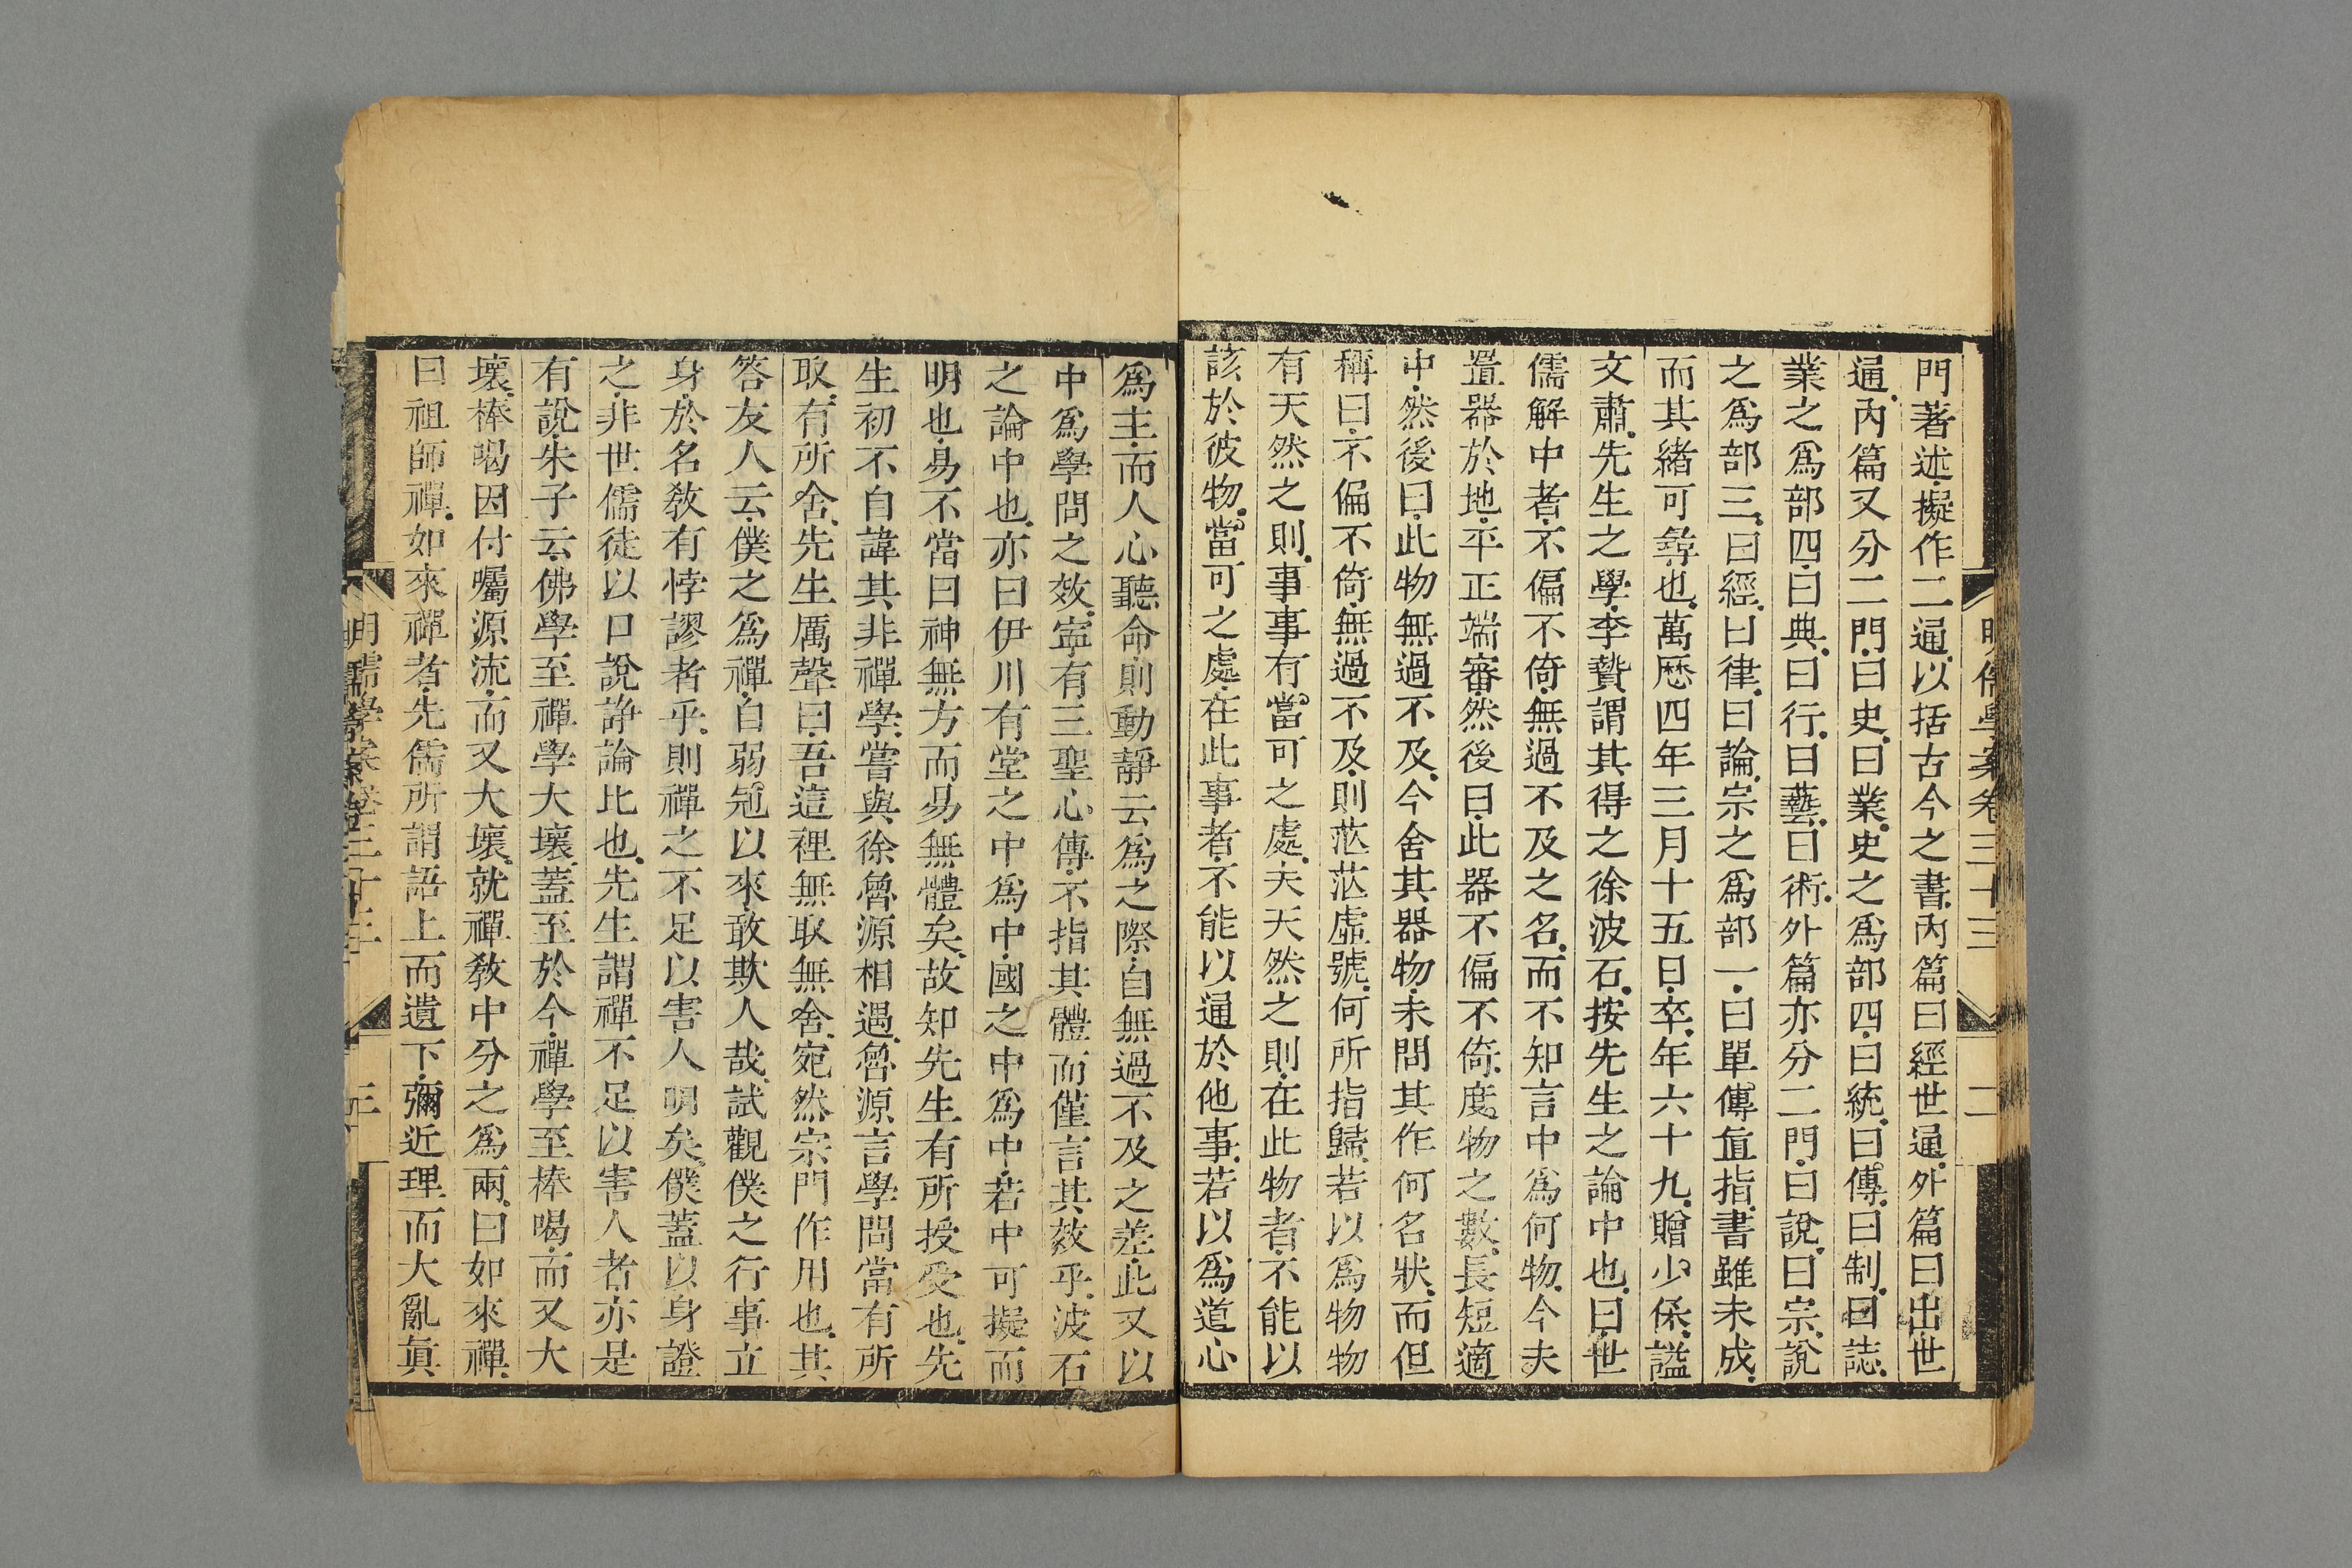 明儒學案卷三十三
二
門著述擬作二通以括古今之書內篇曰經世通外篇曰出世
通內篇又分二門曰史曰業史之爲部四曰統曰傳曰制曰誌
業之爲部四曰典曰行曰藝曰術外篇亦分二門曰說曰宗說
之爲部三曰經曰律曰論宗之爲部一曰單傳直指書雖未成
而其緒可尋也萬歷四年三月十五日卒年六十九贈少保謚
文肅先生之學李贄謂其得之徐波石按先生之論中也曰世
儒解中者不偏不倚無過不及之名而不知言中爲何物今夫
置器於地平正端審然後曰此器不偏不倚度物之數長短適
中然後曰此物無過不及今舍其器物未問其作何名狀而但
稱曰不偏不倚無過不及則茫茫虛號何所指歸若以爲物物
有天然之則事事有當可之處夫天然之則在此物者不能以
該於彼物當可之處在此事者不能以通於他事若以爲道心
爲主而人心聽命則動靜云爲之際自無過不及之差此又以
中爲學問之效寧有三聖心傳不指其體而僅言其效乎波石
之論中也亦曰伊川有堂之中爲中國之中爲中若中可擬而
明也易不當曰神無方而易無體矣故知先生有所授受也先
生初不自諱其非禪學嘗與徐魯源相遇魯源言學問當有所
取有所舍先生厲聲曰吾這裡無取無舍宛然宗門作用也其
答友人云僕之爲禪自弱冠以來敢欺人哉試觀僕之行事立
身於名教有悖謬者乎則禪之不足以害人明矣僕蓋以身證
之非世儒徒以口說諍論比也先生謂禪不足以害人者亦是
有說朱子云佛學至禪學大壞蓋至於今禪學至棒喝而又大
壞棒喝因付囑源流而又大壞就禪教中分之爲兩曰如來禪
曰祖師禪如來禪者先儒所謂語上而遺下彌近理而大亂眞
明儒學案卷三十三
三